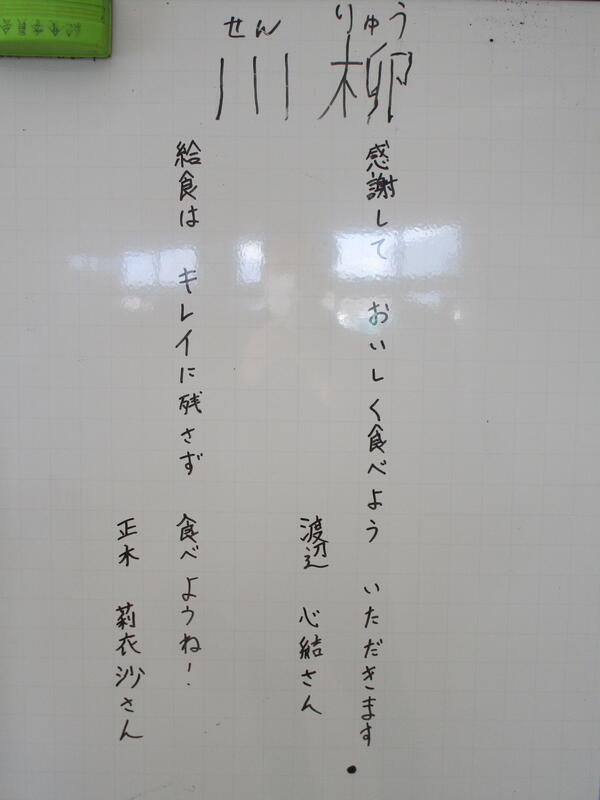 せん りゅう
川柳
感謝して おいしく食べよう いただきます
渡辺 心結さん
給食は キレイに残さず 食べようね!
正木 莉衣沙さん